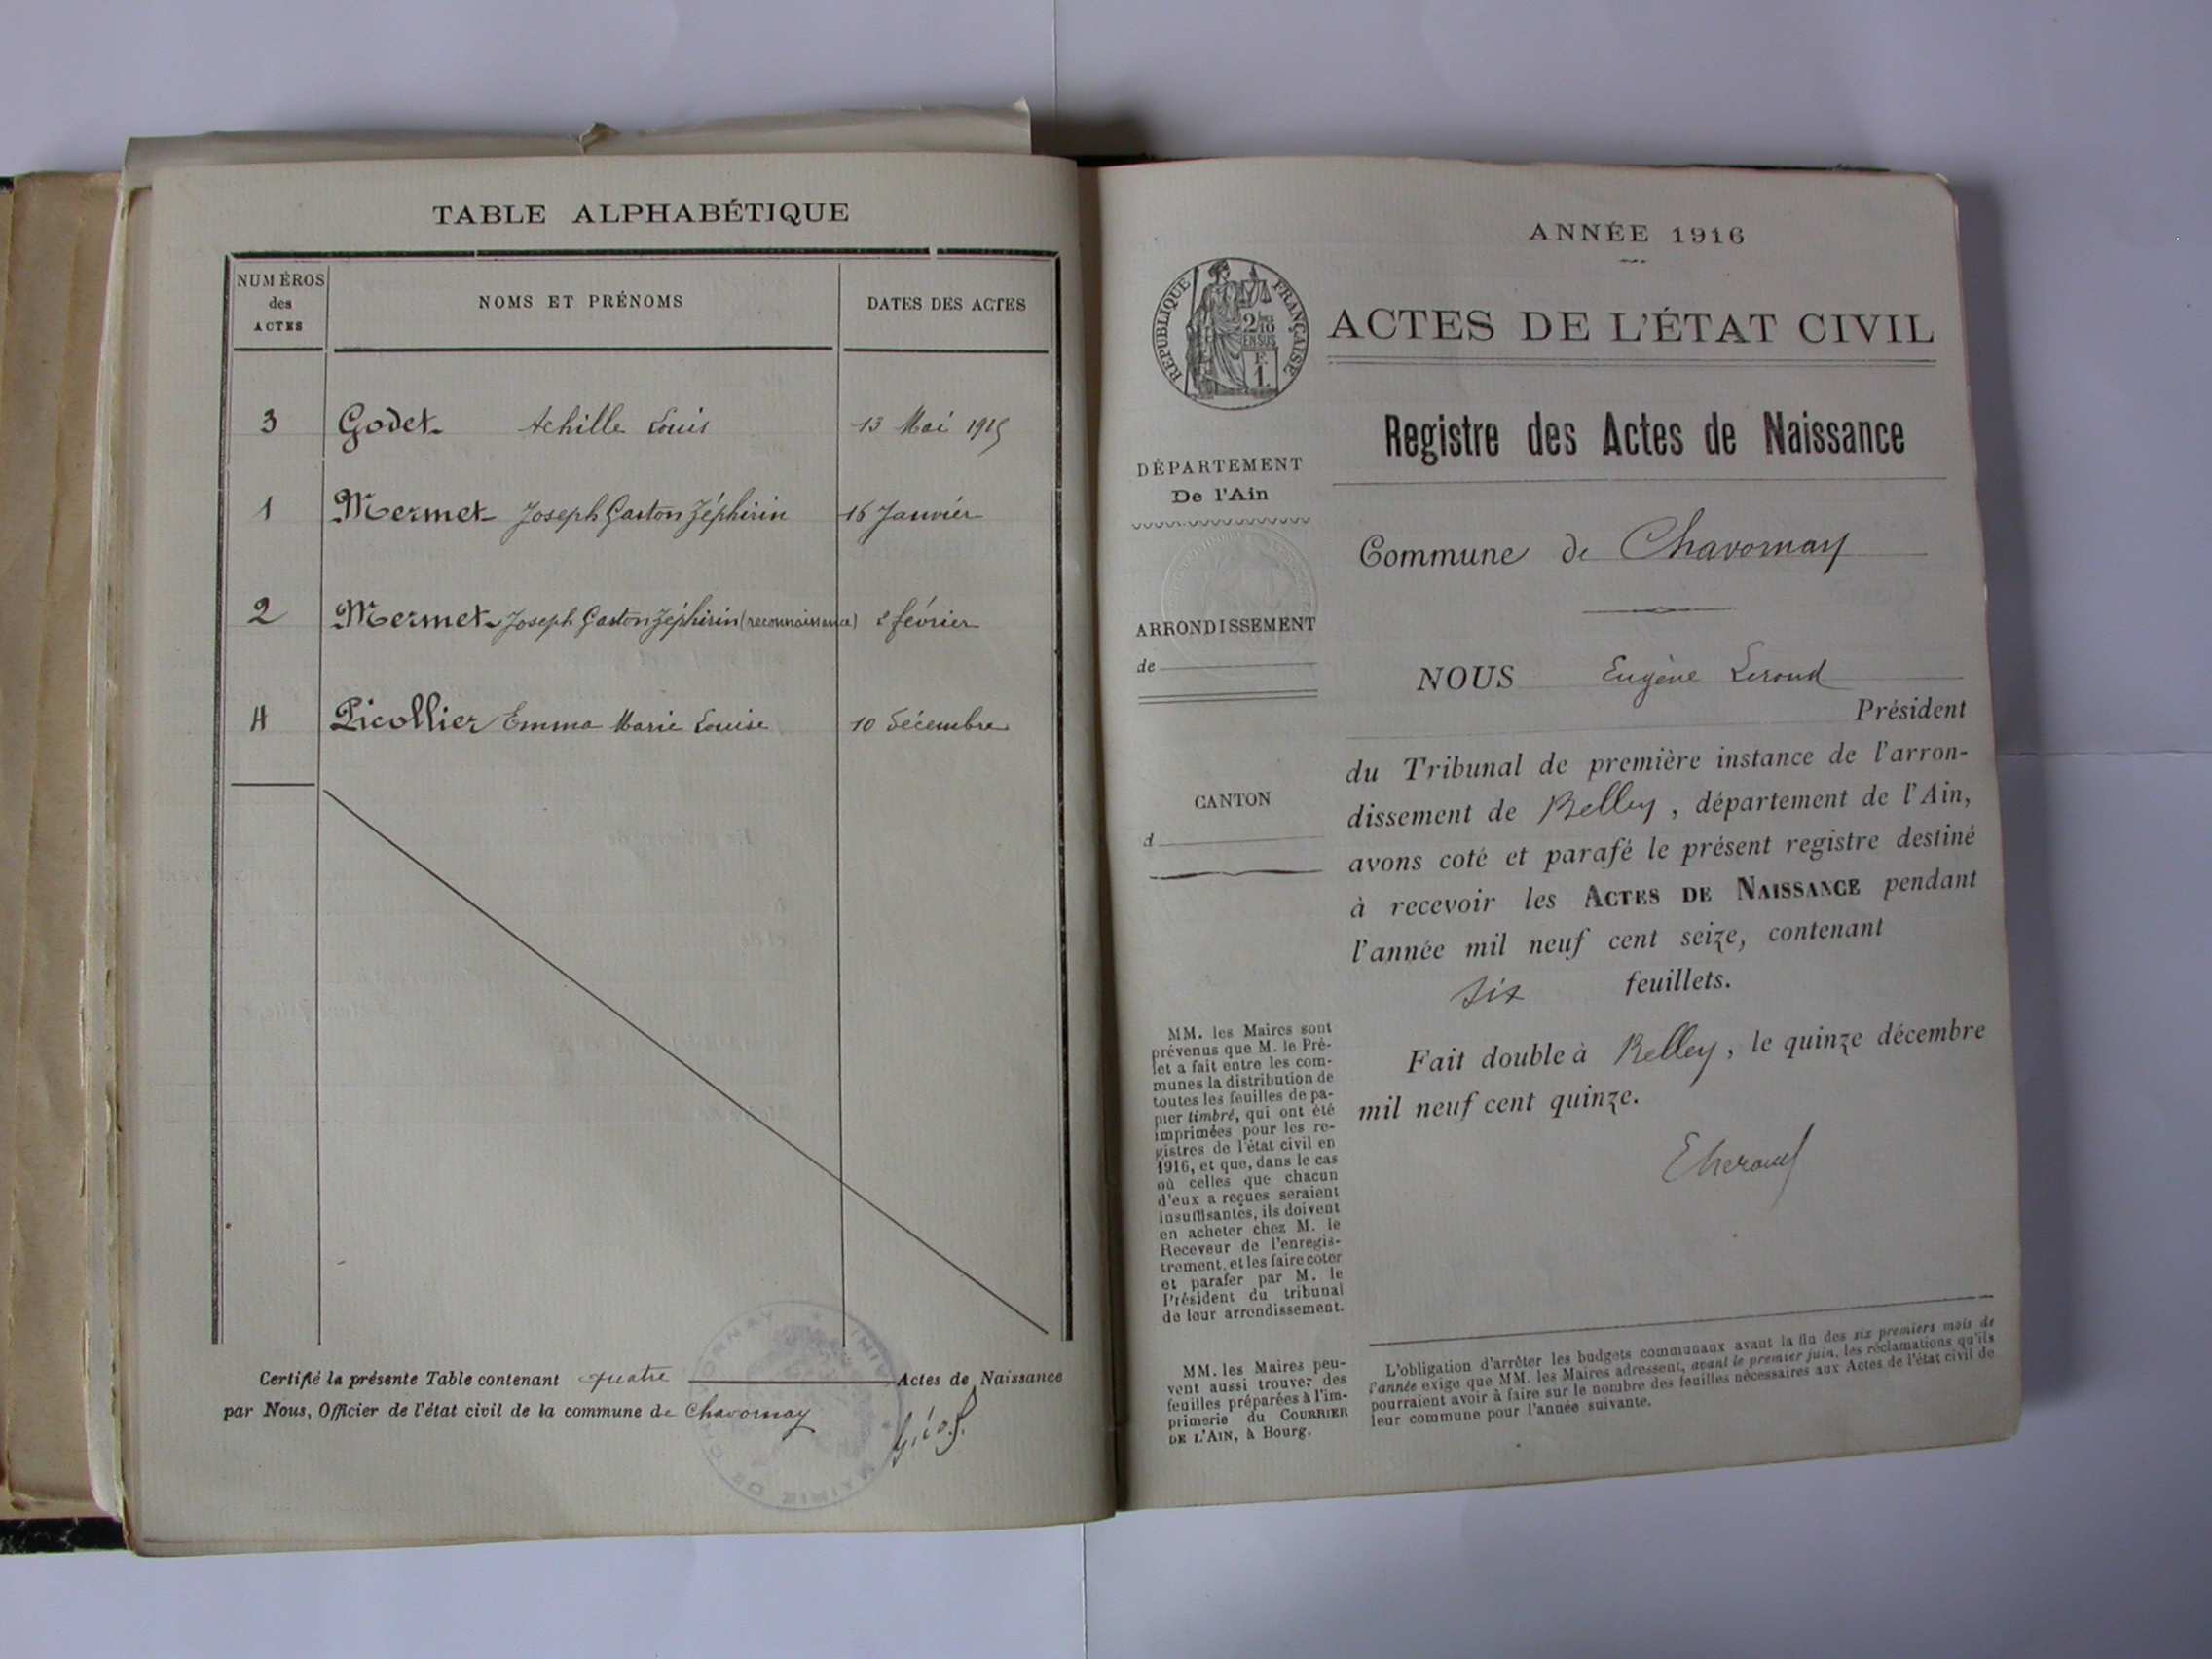 TABLE ALPHABÉTIQUE
NUMÉROS
des
ACTES
NOMS ET PRÉNOMS
DATES DES ACTES
3 Godet Achille Louis 13 Mai 1915
1 Mermet Joseph Gaston Zéphirin 16 Janvier
2 Mermet Joseph Gaston Zéphirin (reconnaissance) 2 février
4 Picollier Emma Marie Louise 10 décembre
Certifié la présente Table contenant quatre Actes de Naissance
par Nous, Officier de l'état civil de la commune de Chavornay
MAIRIE DE CHAVORNAY
ANNÉE 1916
RÉPUBLIQUE FRANÇAISE
ACTES DE L'ÉTAT CIVIL
Registre des Actes de Naissance
DÉPARTEMENT
De l'Ain
Commune de Chavornay
ARRONDISSEMENT
de
NOUS Eugène
Président
du Tribunal de première instance de l'arron-
dissement de Belley, département de l'Ain,
avons coté et parafé le présent registre destiné
à recevoir les ACTES DE NAISSANCE pendant
l'année mil neuf cent seize, contenant
six feuillets.
Fait double à Belley, le quinze décembre
mil neuf cent quinze.
CANTON
d
MM. les Maires sont
prévenus que M. le Pré-
fet a fait entre les com-
munes la distribution de
toutes les feuilles de pa-
pier timbré, qui ont été
imprimées pour les re-
gistres de l'état civil en
1916, et que, dans le cas
où celles que chacun
d'eux a reçues seraient
insuffisantes, ils doivent
en acheter chez M. le
Receveur de l'enregis-
trement, et les faire coter
et parafer par M. le
Président du tribunal
de leur arrondissement.
MM. les Maires peu-
vent aussi trouver des
feuilles préparées à l'im-
primerie du COURRIER
DE L'AIN, à Bourg.
L'obligation d'arrêter les budgets communaux avant la fin des six premiers mois de
l'année exige que MM. les Maires adressent, avant le premier juin, les réclamations qu'ils
pourraient avoir à faire sur le nombre des feuilles nécessaires aux Actes de l'état civil de
leur commune pour l'année suivante.